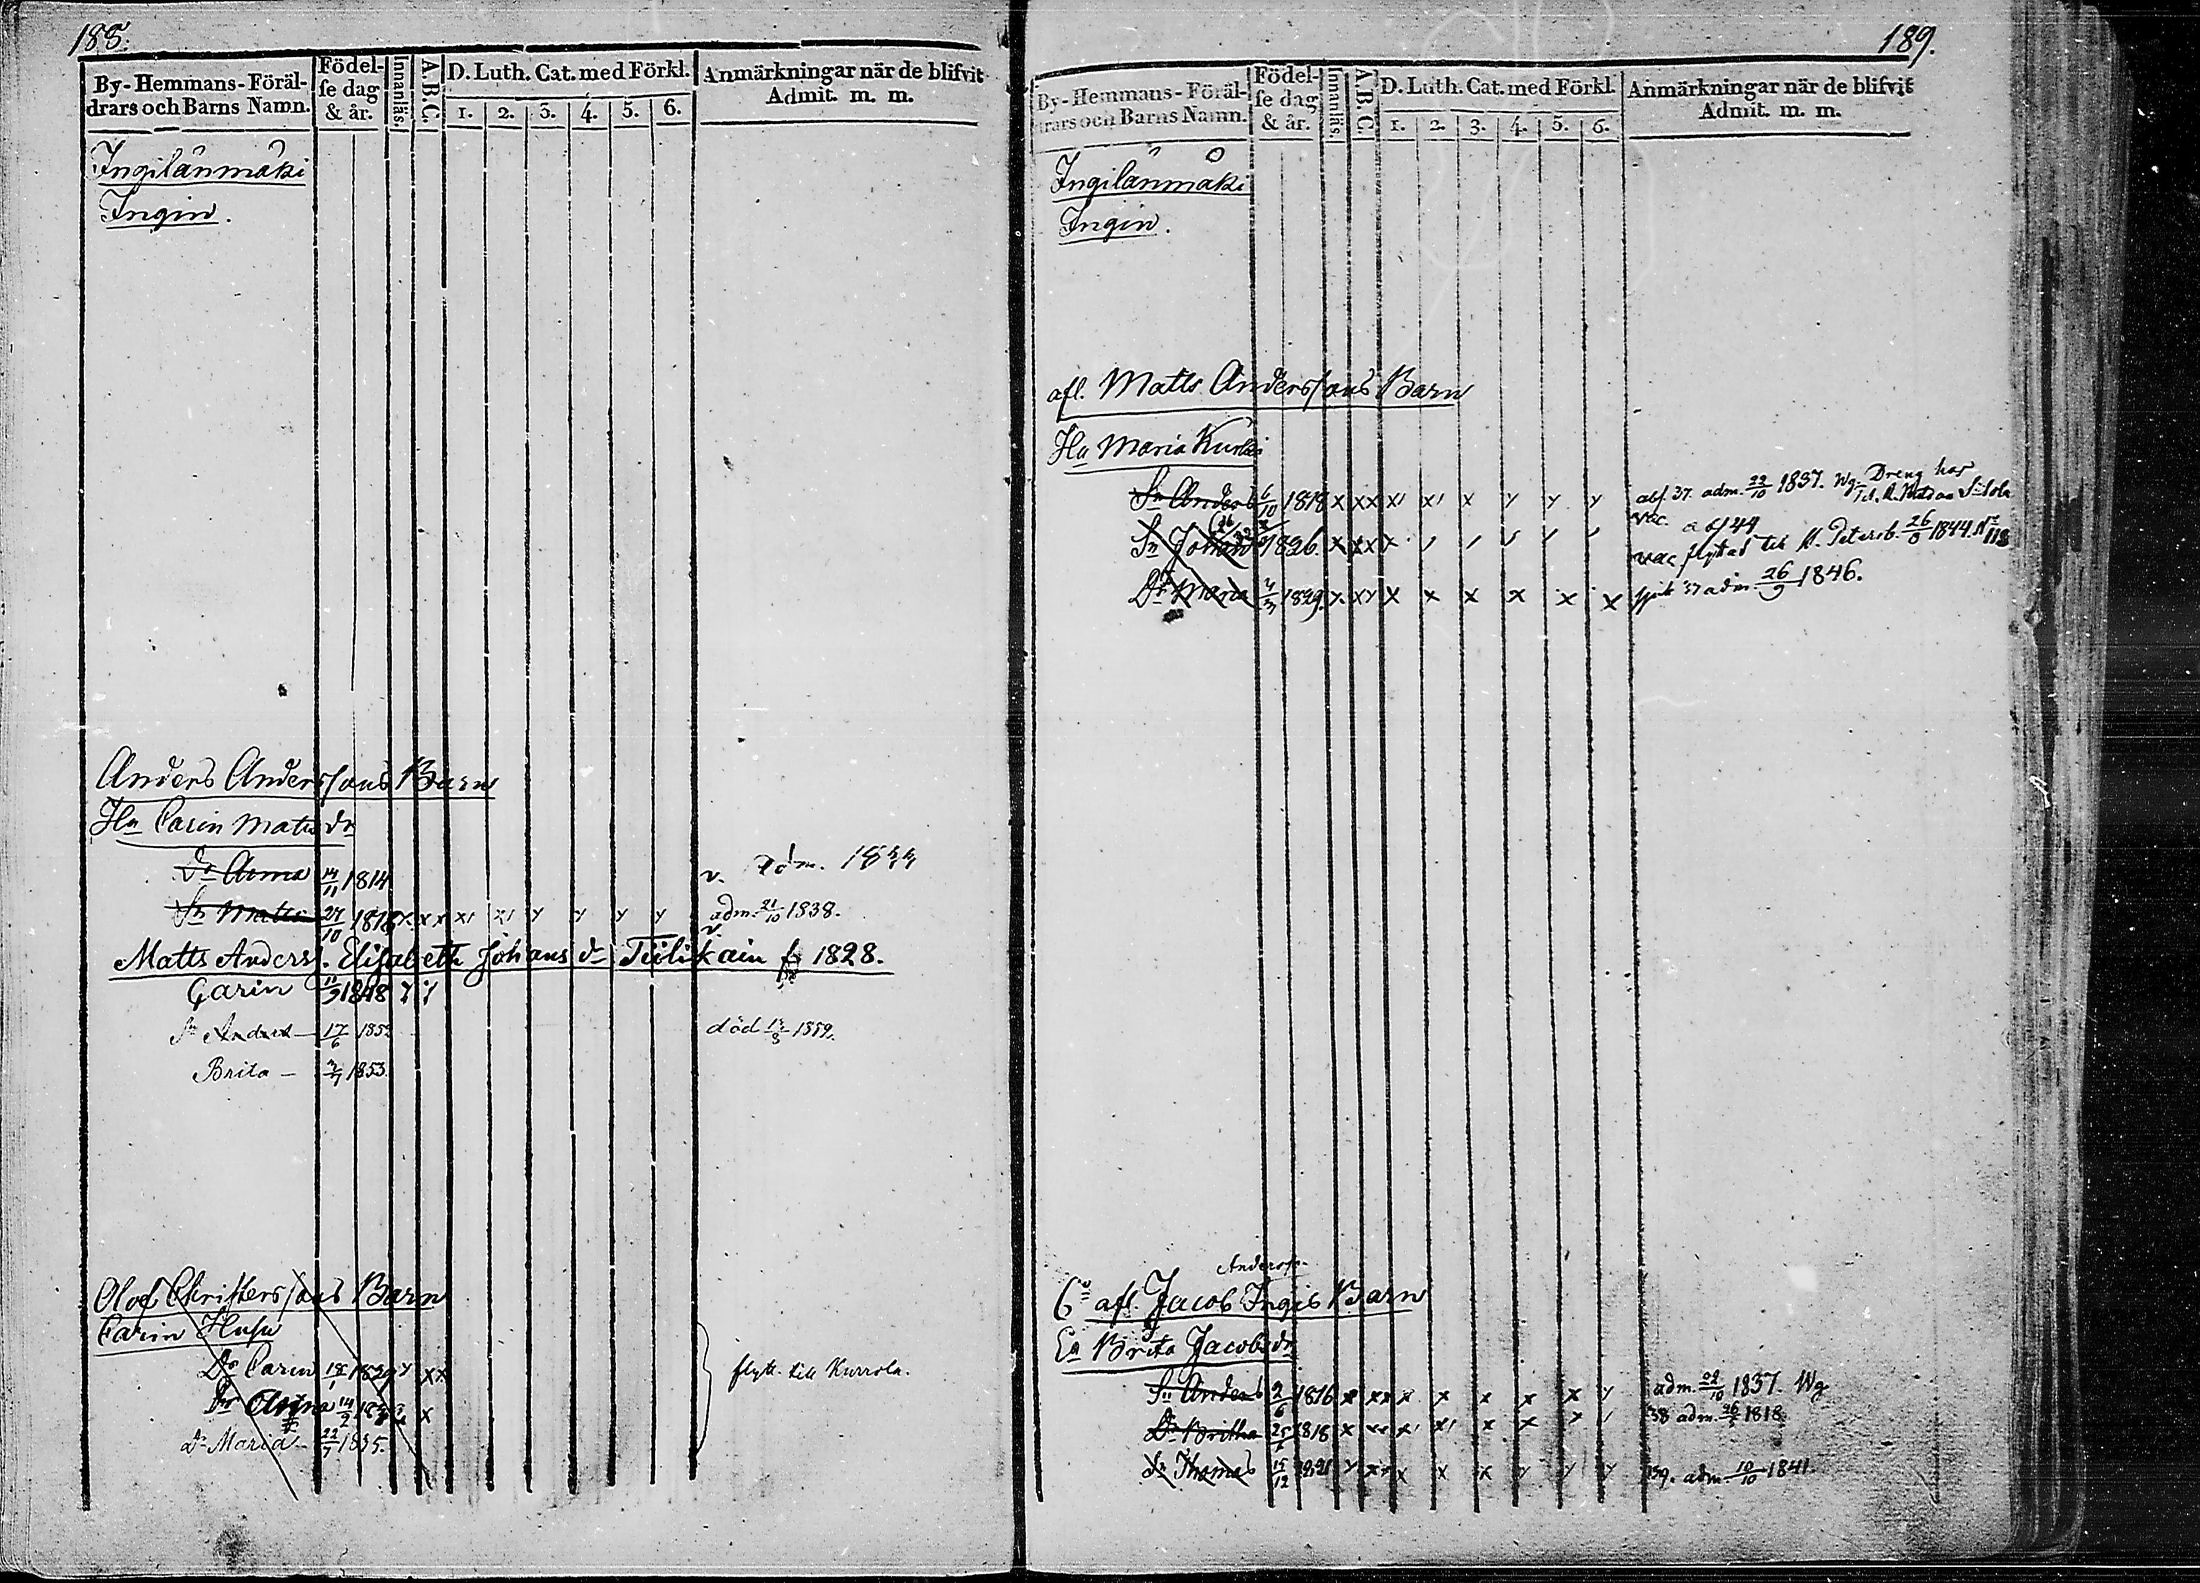 188.
By-Hemmans-Föräl-
drars och Barns Namn.
Födel-
se dag
& år.
Innanläs.
A.B.C.
D. Luth. Cat. med Förkl.
1. 2. 3. 4. 5. 6.
Anmärkningar när de blifvit
Admit. m. m.
Ingilänmäki
Ingin.
Anders Anderssons Barn
Hu Carin Matsdr
Dr Anna 14/11 1814 v. adm. 1833
Sn Matts 24/10 1818 x x x x1 x1 y y y y adm. 21/10 1838.
v.
Matts Anders. Elisabeth Johansdr Tiilikain f. 1828.
Carin 11/9 1848
Sn Anders 17/6 1852 död 1859.
Brita 1853.
Olof Christerssons Barn
Carin Husu
Dr Carin 18/1 y x x flytt. till Kurrola.
Dr Anna 14/2 x
Dr Maria 22/7 1835.
189.
By-Hemmans-Föräl-
drars och Barns Namn.
Födel-
se dag
& år.
Innanläs.
A.B.C.
D. Luth. Cat. med Förkl.
1. 2. 3. 4. 5. 6.
Anmärkningar när de blifvit
Admit. m. m.
Ingilänmäki
Ingin.
afl. Matts Anderssons Barn
Hu Maria Kurki
Sn Anders 6/10 1818 x x x x1 x1 x y y y 37. adm. 22/10 1837. Wg. Dreng hos
vac. af 44
Sn Johan 1826. x x x x vac flyttat till St. Petersb. 26/8 1844. No 118
Dr Maria 4/3 1829. x x y x x x x x x adm. 26/9 1846.
Anderss.
afl. Jacob Ingis Barn
Ea Brita Jacobsdr
Sn Anders 2/6 1816 x x x x x x x x y adm. 1837. Wg
Dr Britha 1818 x x x x1 x1 x x y 38 adm. 1818
Sn Thomas 15/12 1821 y x x x x x y y y 39. adm. 10/10 1841.